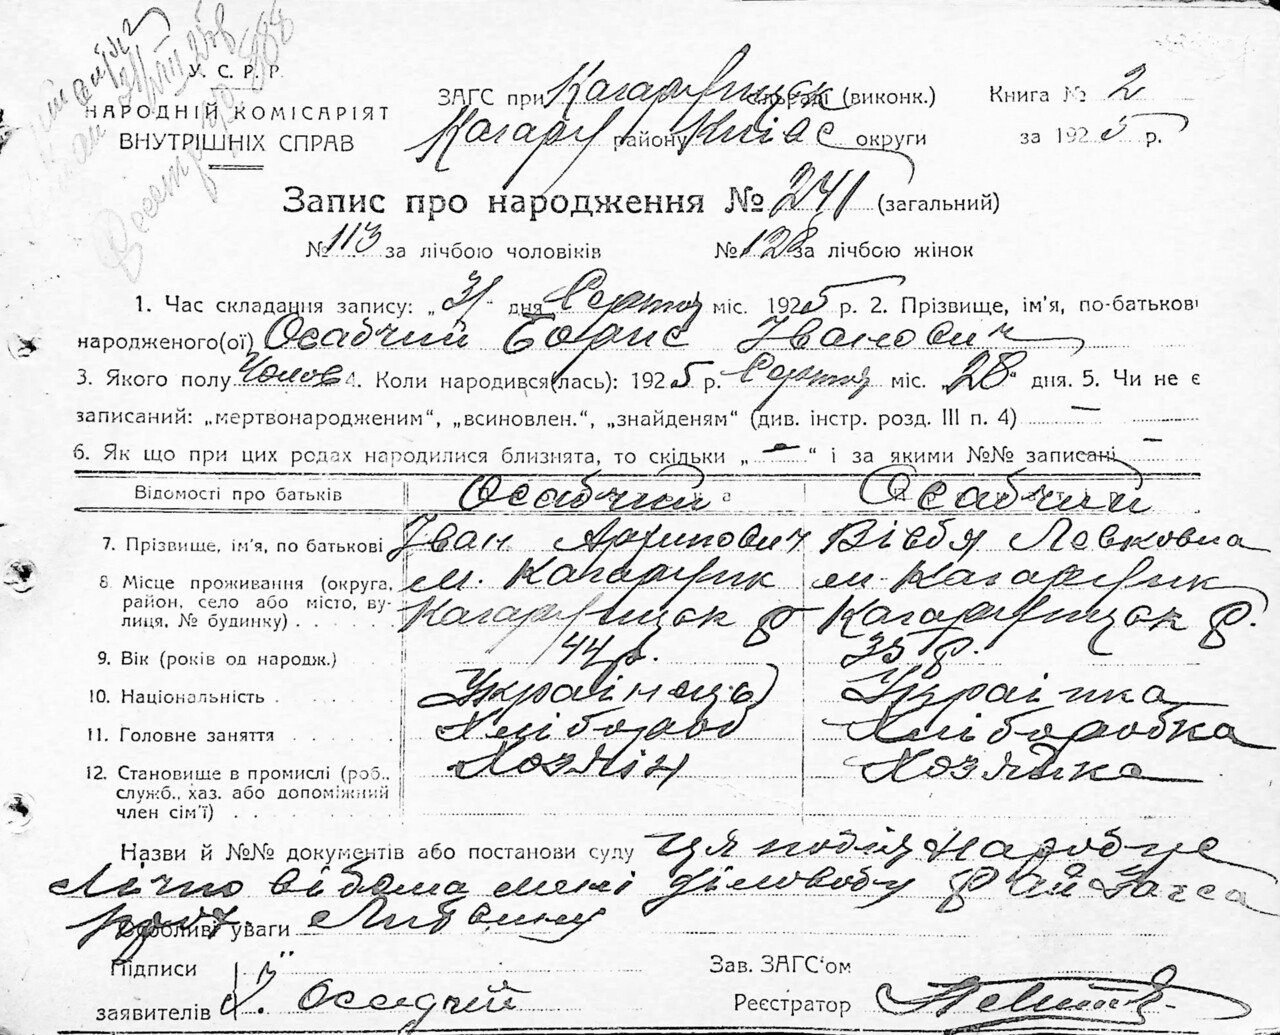 У. С. Р. Р.
НАРОДНІЙ КОМІСАРІЯТ
ВНУТРІШНІХ СПРАВ
ЗАГС при Кагарлицск сільраді (виконк.)
Кагарл району Київс округи
Книга № 2
за 1925 р.
Запис про народження № 241 (загальний)
№ 113 за лічбою чоловіків № 128 за лічбою жінок
1. Час складання запису: „31“ дня Серпня міс. 1925 р. 2. Прізвище, ім'я, по-батькові
народженого(ої) Осабчий Борис Іванович
3. Якого полу Чолов 4. Коли народився(лась): 1925 р. Серпня міс. „28“ дня. 5. Чи не є
записаний: „мертвонародженим“, „всиновлен.“, „знайденям“ (див. інстр. розд. III п. 4) —
6. Як що при цих родах народилися близнята, то скільки „—“ і за якими №№ записані —
Відомості про батьків Осабчий Осабчий
7. Прізвище, ім'я, по батькові Іван Левковна
8. Місце проживання (округа, м. Кагарлик м. Кагарлик
район, село або місто, ву- Кагарлицск р Кагарлицск р.
лиця, № будинку)
9. Вік (років од народж.) 44 р. 35 р.
10. Національність Українець Українка
11. Головне заняття Хлібороб Хліборобка
12. Становище в промислі (роб., Хозяїн Хозяйка
служб., хаз. або допоміжний
член сім'ї)
Назви й №№ документів або постанови суду ця подія
Лічно відома мені діловоду Рай Загса
Особливі уваги Литвину
Підписи
заявителів
Зав. ЗАГС'ом
Реєстратор